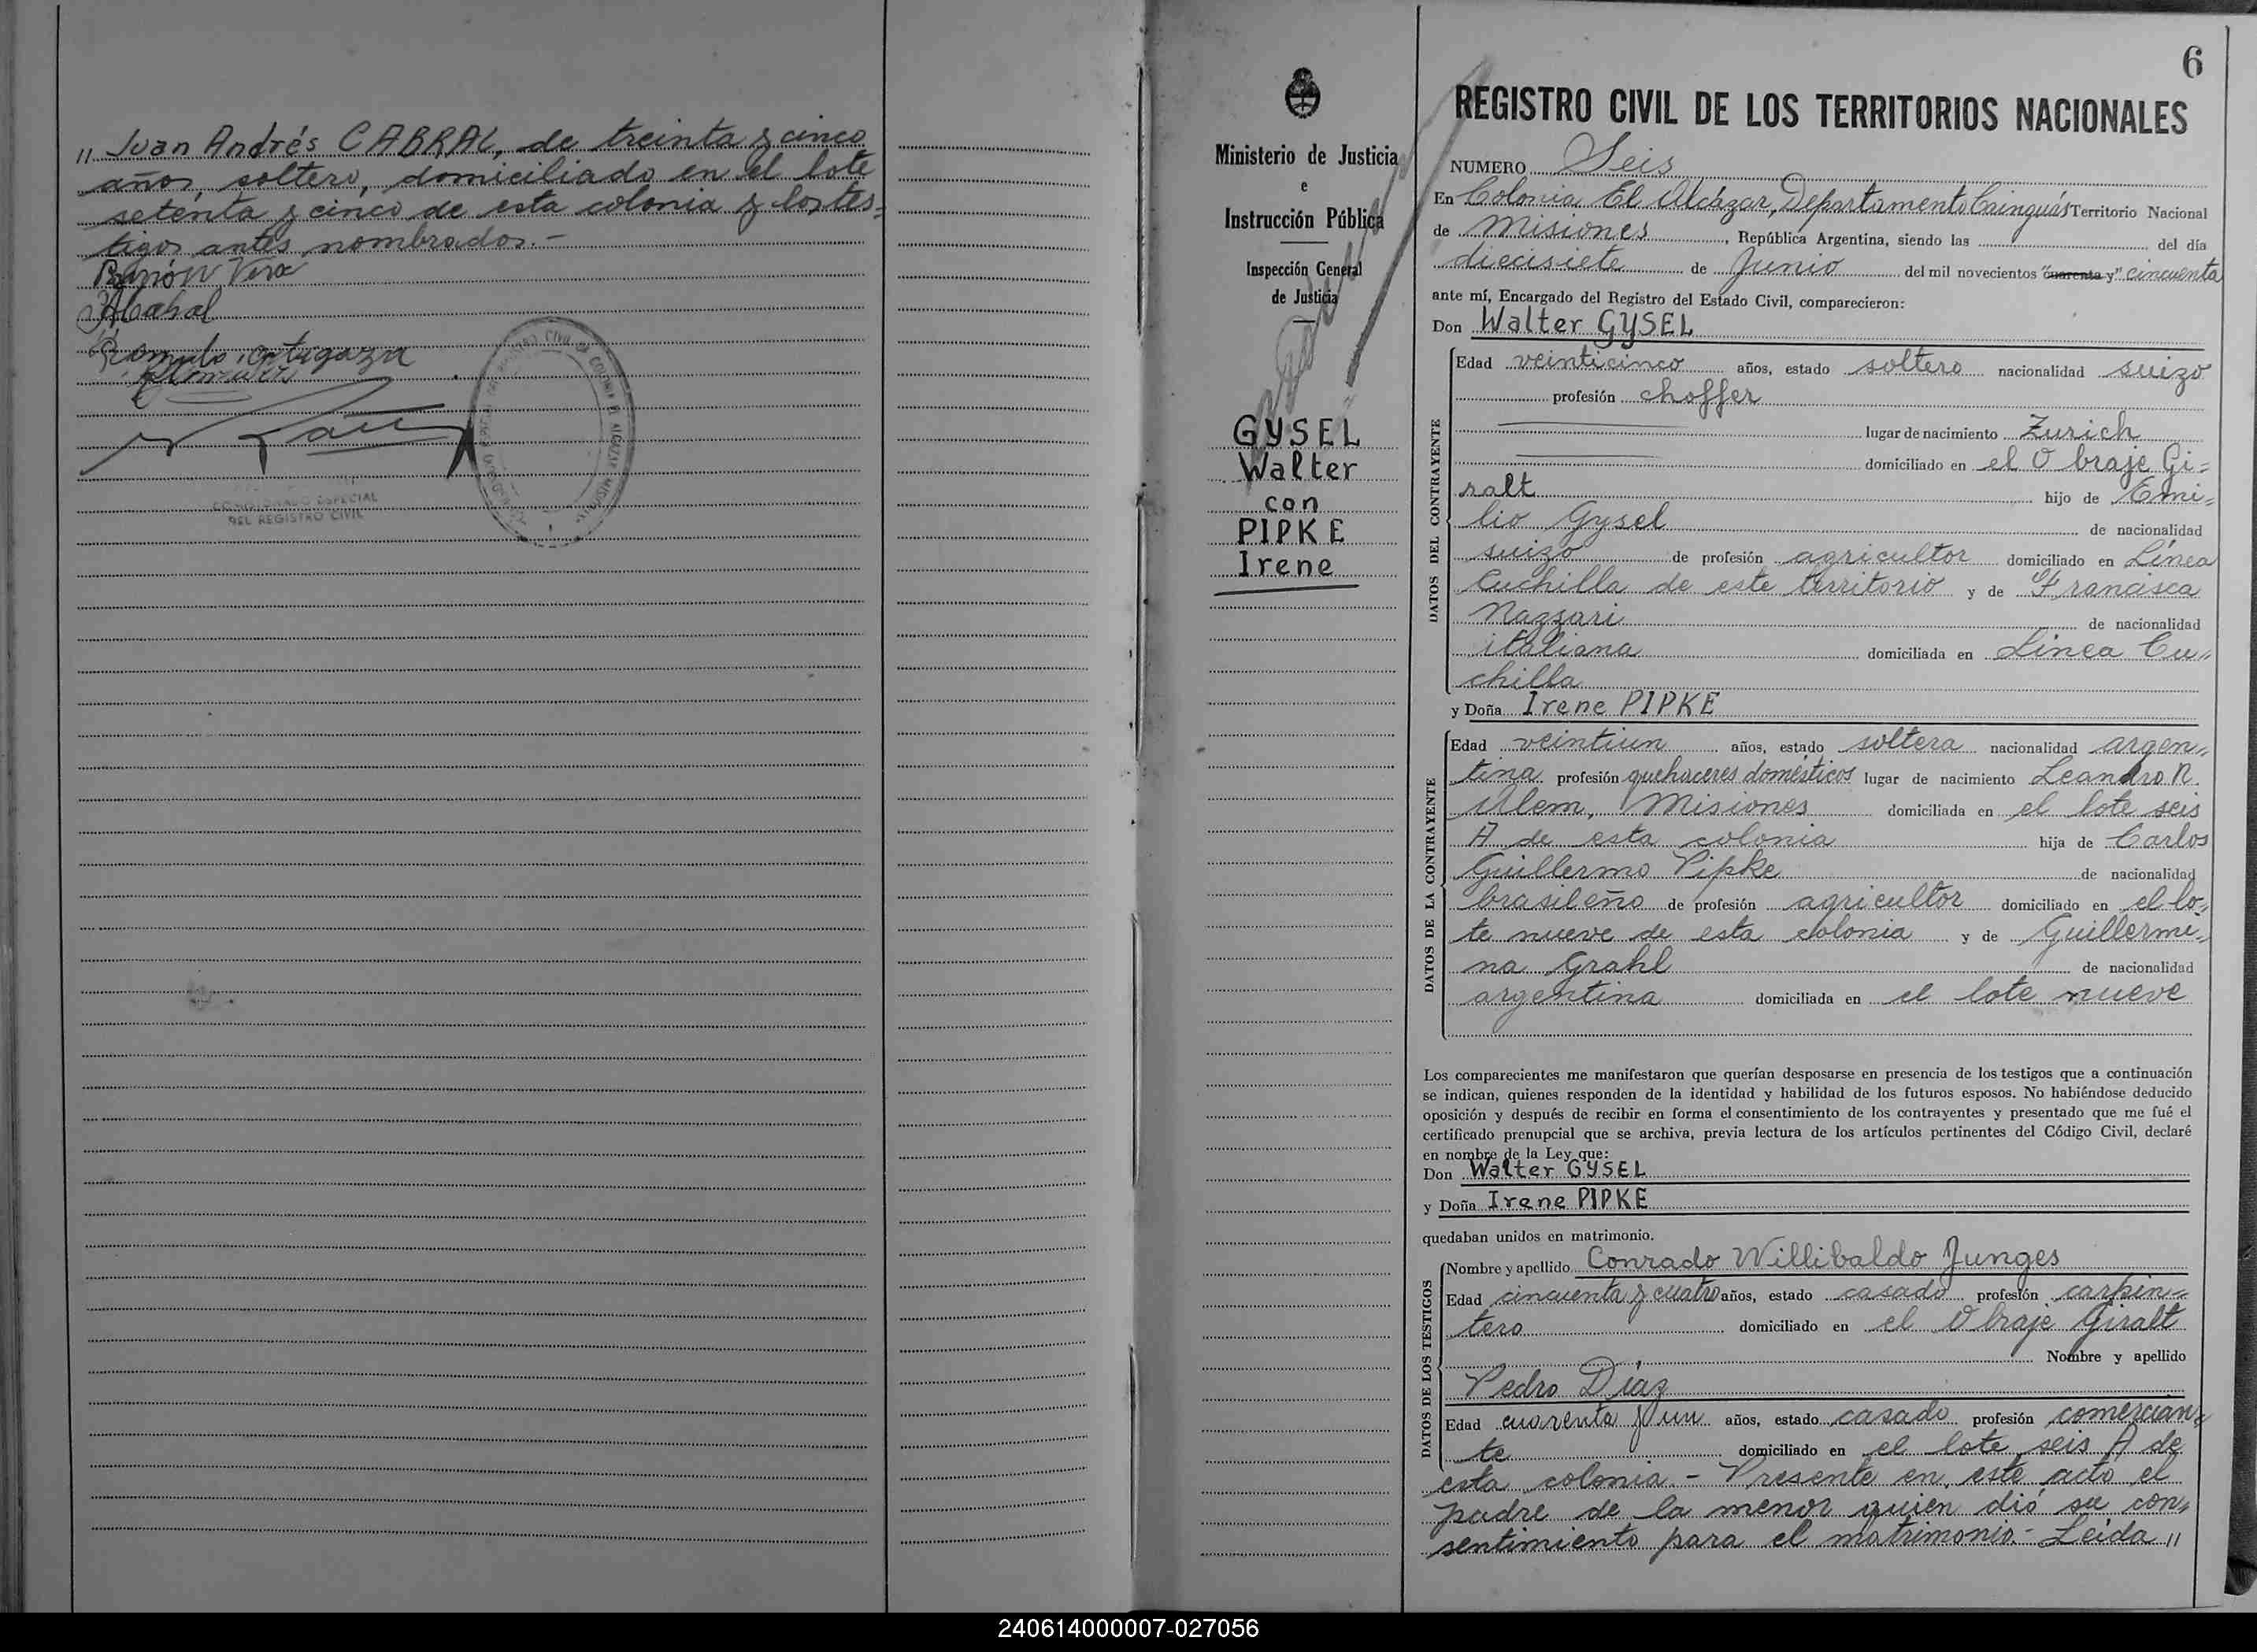 „ Juan Andrés CABRAL, de treinta y cinco
años, soltero, domiciliado en el lote
setenta y cinco de esta colonia y los tes=
tigos antes nombrados.-
Ramón Vera
COMISIONADO ESPECIAL
DEL REGISTRO CIVIL
6
Ministerio de Justicia
e
Instrucción Pública
Inspección General
de Justicia
GYSEL
Walter
con
PIPKE
Irene
REGISTRO CIVIL DE LOS TERRITORIOS NACIONALES
NUMERO Seis
En Colonia El Alcázar, Departamento Cainguás Territorio Nacional
de Misiones, República Argentina, siendo las del día
diecisiete de Junio del mil novecientos "cuarenta y" cincuenta
ante mí, Encargado del Registro del Estado Civil, comparecieron:
Don Walter GYSEL
DATOS DEL CONTRAYENTE
Edad veinticinco años, estado soltero nacionalidad suizo
profesión choffer
lugar de nacimiento Zurich
domiciliado en el Obraje Gi=
ralt hijo de Emi=
lio Gysel de nacionalidad
suizo de profesión agricultor domiciliado en Línea
Cuchilla de este territorio y de Francisca
Nazzari de nacionalidad
italiana domiciliada en Línea Cu„
chilla
y Doña Irene PIPKE
DATOS DE LA CONTRAYENTE
Edad veintiun años, estado soltera nacionalidad argen„
tina profesión quehaceres domésticos lugar de nacimiento Leandro N.
Alem, Misiones domiciliada en el lote seis
A de esta colonia hija de Carlos
Guillermo Pipke de nacionalidad
brasileño de profesión agricultor domiciliado en el lo„
te nueve de esta colonia y de Guillermi„
na Grahl de nacionalidad
argentina domiciliada en el lote nueve
Los comparecientes me manifestaron que querían desposarse en presencia de los testigos que a continuación
se indican, quienes responden de la identidad y habilidad de los futuros esposos. No habiéndose deducido
oposición y después de recibir en forma el consentimiento de los contrayentes y presentado que me fué el
certificado prenupcial que se archiva, previa lectura de los artículos pertinentes del Código Civil, declaré
en nombre de la Ley que:
Don Walter GYSEL
y Doña Irene PIPKE
quedaban unidos en matrimonio.
DATOS DE LOS TESTIGOS
Nombre y apellido Conrado Willibaldo Junges
Edad cincuenta y cuatro años, estado casado profesión carpin=
tero domiciliado en el Obraje Giralt
Nombre y apellido
Pedro Díaz
Edad cuarenta y un años, estado casado profesión comercian=
te domiciliado en el lote seis A de
esta colonia.- Presente en este acto el
padre de la menor quien dió su con„
sentimiento para el matrimonio.- Leida „
240614000007-027056